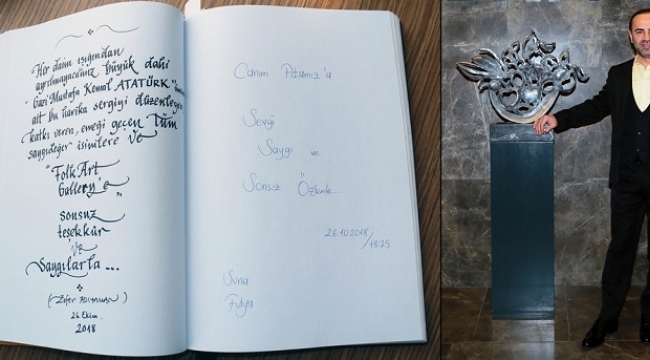 Her daim ışığından
ayrılmayacağımız büyük dahi
"Gazi Mustafa Kemal ATATÜRK"
ait bu harika sergiyi düzenleyen
katkı veren, emeği geçen Tüm
saygıdeğer isimlere ve
"Folk Art
Gallery'e"
sonsuz
teşekkür
ve
Saygılarla...
26 Ekim
2018
Canım Atamız'a
Sevgi
Saygı ve
Sonsuz Özlemle...
26.10.2018
/15:25
Sunal
Fulya